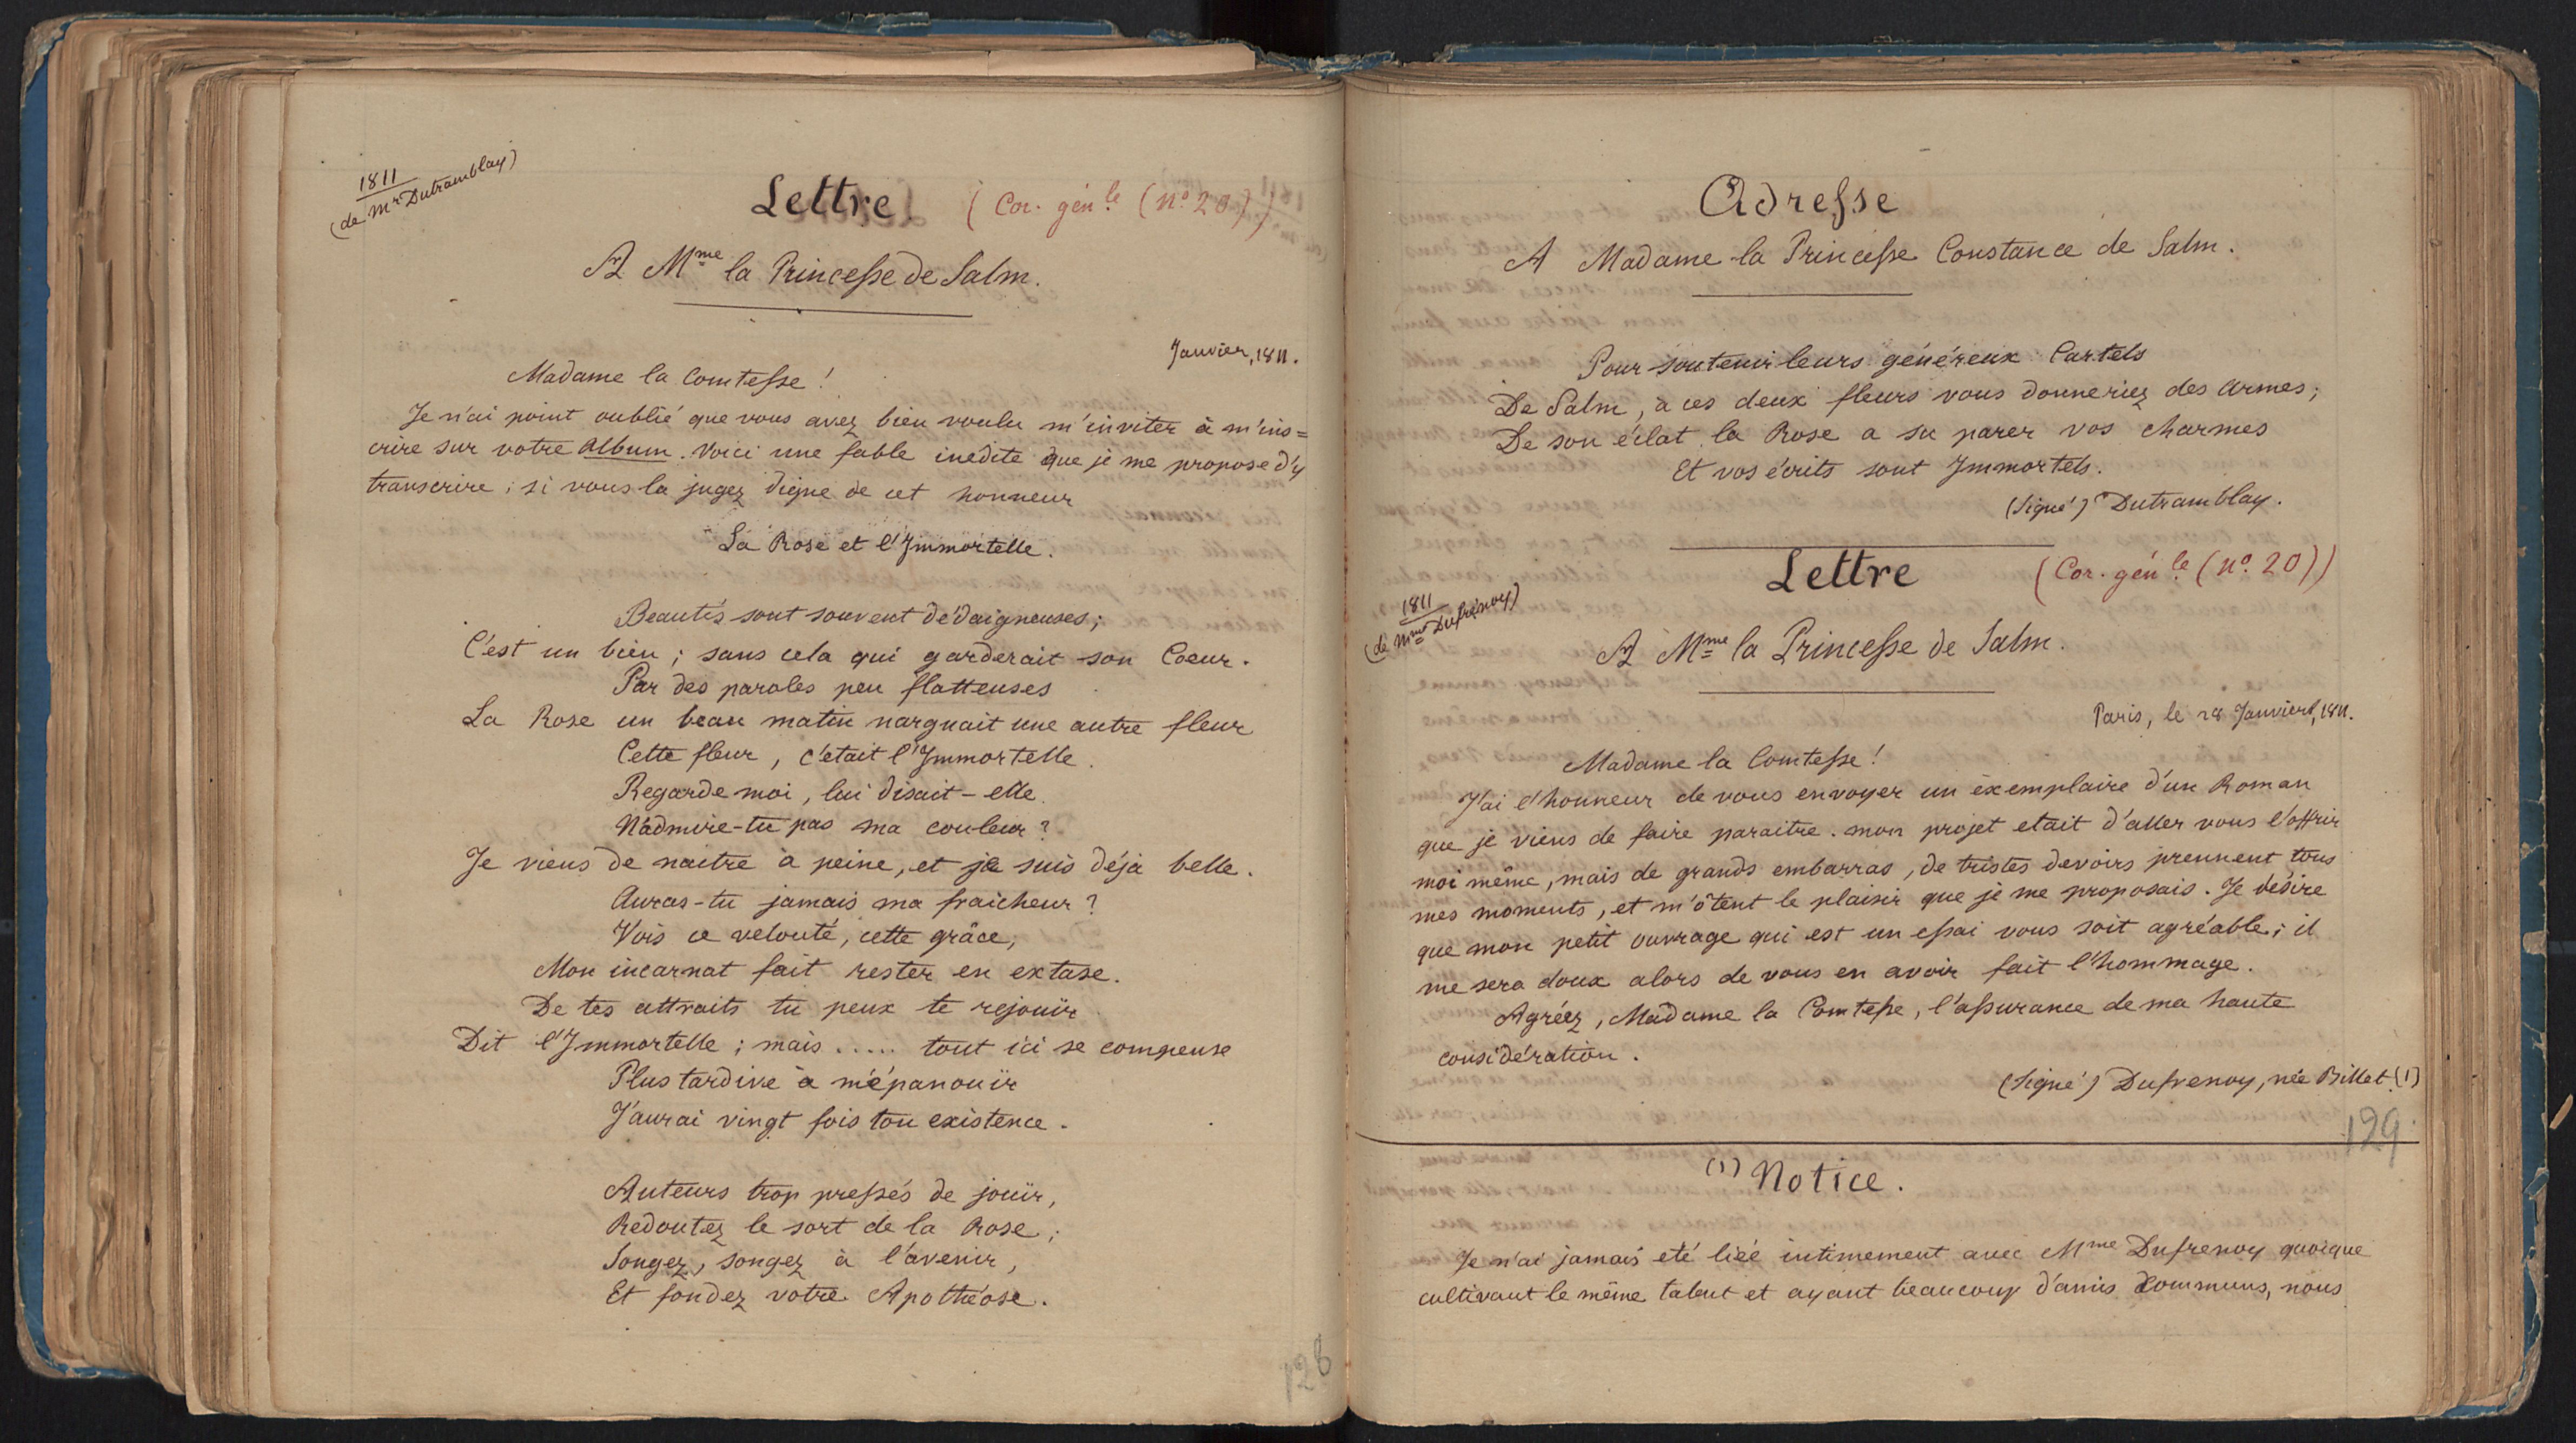 1811
(de Mr Dutramblay)
Lettre (Cor. génle (No 20))
A Mme la Princesse de Salm.
Janvier, 1811.
Madame la Comtesse !
Je n'ai point oublié que vous avez bien voulu m'inviter à m'ins=
crire sur votre Album. Voici une fable inedite que je me propose d'y
transcrire ; si vous la jugez digne de cet honneur
La Rose et l'Immortelle.
Beautés sont souvent dédaigneuses ;
C'est un bien ; sans cela qui garderait son Coeur.
Par des paroles peu flatteuses
La Rose un beau matin narguait une autre fleur
Cette fleur, c'etait l'Immortelle.
Regarde moi, lui disait-elle
N'admire-tu pas ma couleur ?
Je viens de naitre à peine, et je suis déja belle.
Auras-tu jamais ma fraicheur ?
Vois ce velouté, cette grâce,
Mon incarnat fait rester en extase.
De tes attraits tu peux te rejouir
Dit l'Immortelle ; mais ..... tout ici se compense
Plus tardive à m'épanouïr
J'aurai vingt fois ton existence.
Auteurs trop pressés de jouïr,
Redoutez le sort de la Rose ;
Songez, songez à l'avenir,
Et fondez votre Apothéose.
128
Adresse
A Madame la Princesse Constance de Salm.
Pour soutenir leurs généreux Cartels
De Salm, à ces deux fleurs vous donneriez des armes ;
De son éclat la Rose a su parer vos charmes
Et vos écrits sont Immortels.
(Signé) Dutramblay.
Lettre (Cor. génle (No. 20))
1811
(de Mme Dufrénoy)
A Mme la Princesse de Salm.
Paris, le 28 Janvier, 1811.
Madame la Comtesse !
J'ai l'honneur de vous envoyer un exemplaire d'un Roman
que je viens de faire paraitre. mon projet etait d'aller vous l'offrir
moi même, mais de grands embarras, de tristes devoirs prennent tous
mes moments, et m'ôtent le plaisir que je me proposais. Je désire
que mon petit ouvrage qui est un essai vous soit agréable ; il
me sera doux alors de vous en avoir fait l'hommage.
Agréez, Madame la Comtesse, l'assurance de ma haute
considération.
(Signé) Dufrenoy, née Billet (1)
129
(1) Notice.
Je n'ai jamais été liée intimement avec Mme Dufrenoy quoique
cultivant le même talent et ayant beaucoup d'amis communs, nous